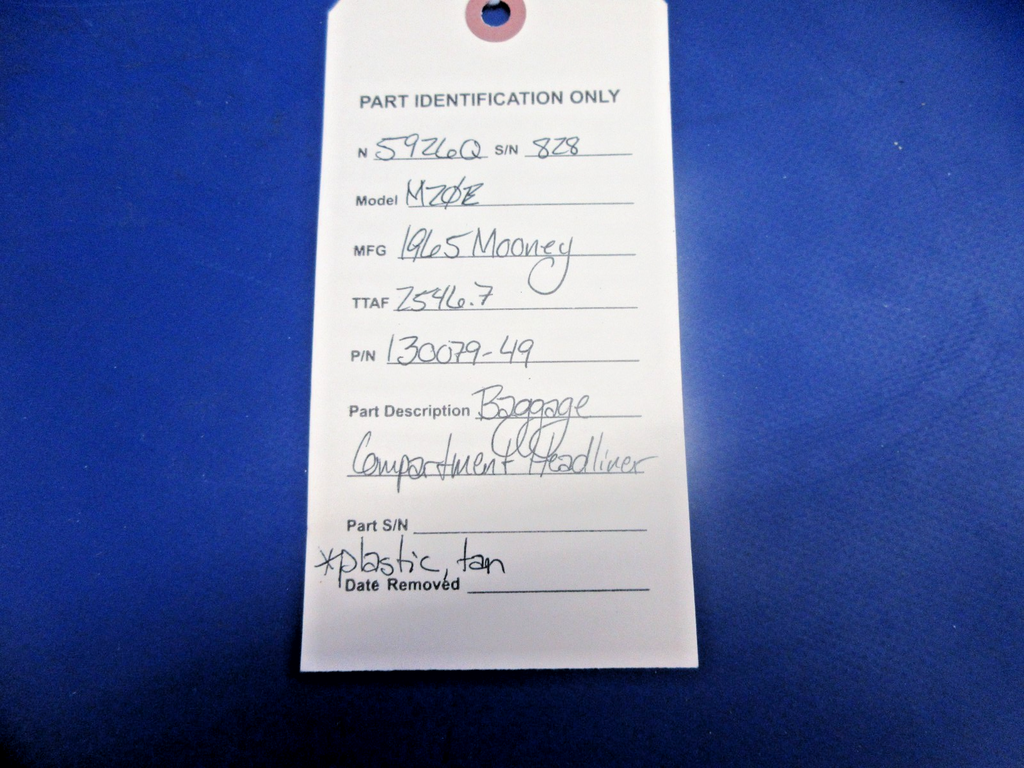 PART IDENTIFICATION ONLY
N 5926Q S/N 828
Model M20E
MFG 1965 Mooney
TTAF 2546.7
P/N 130079-49
Part Description Baggage
Compartment Headliner
Part S/N
*plastic, tan
Date Removed